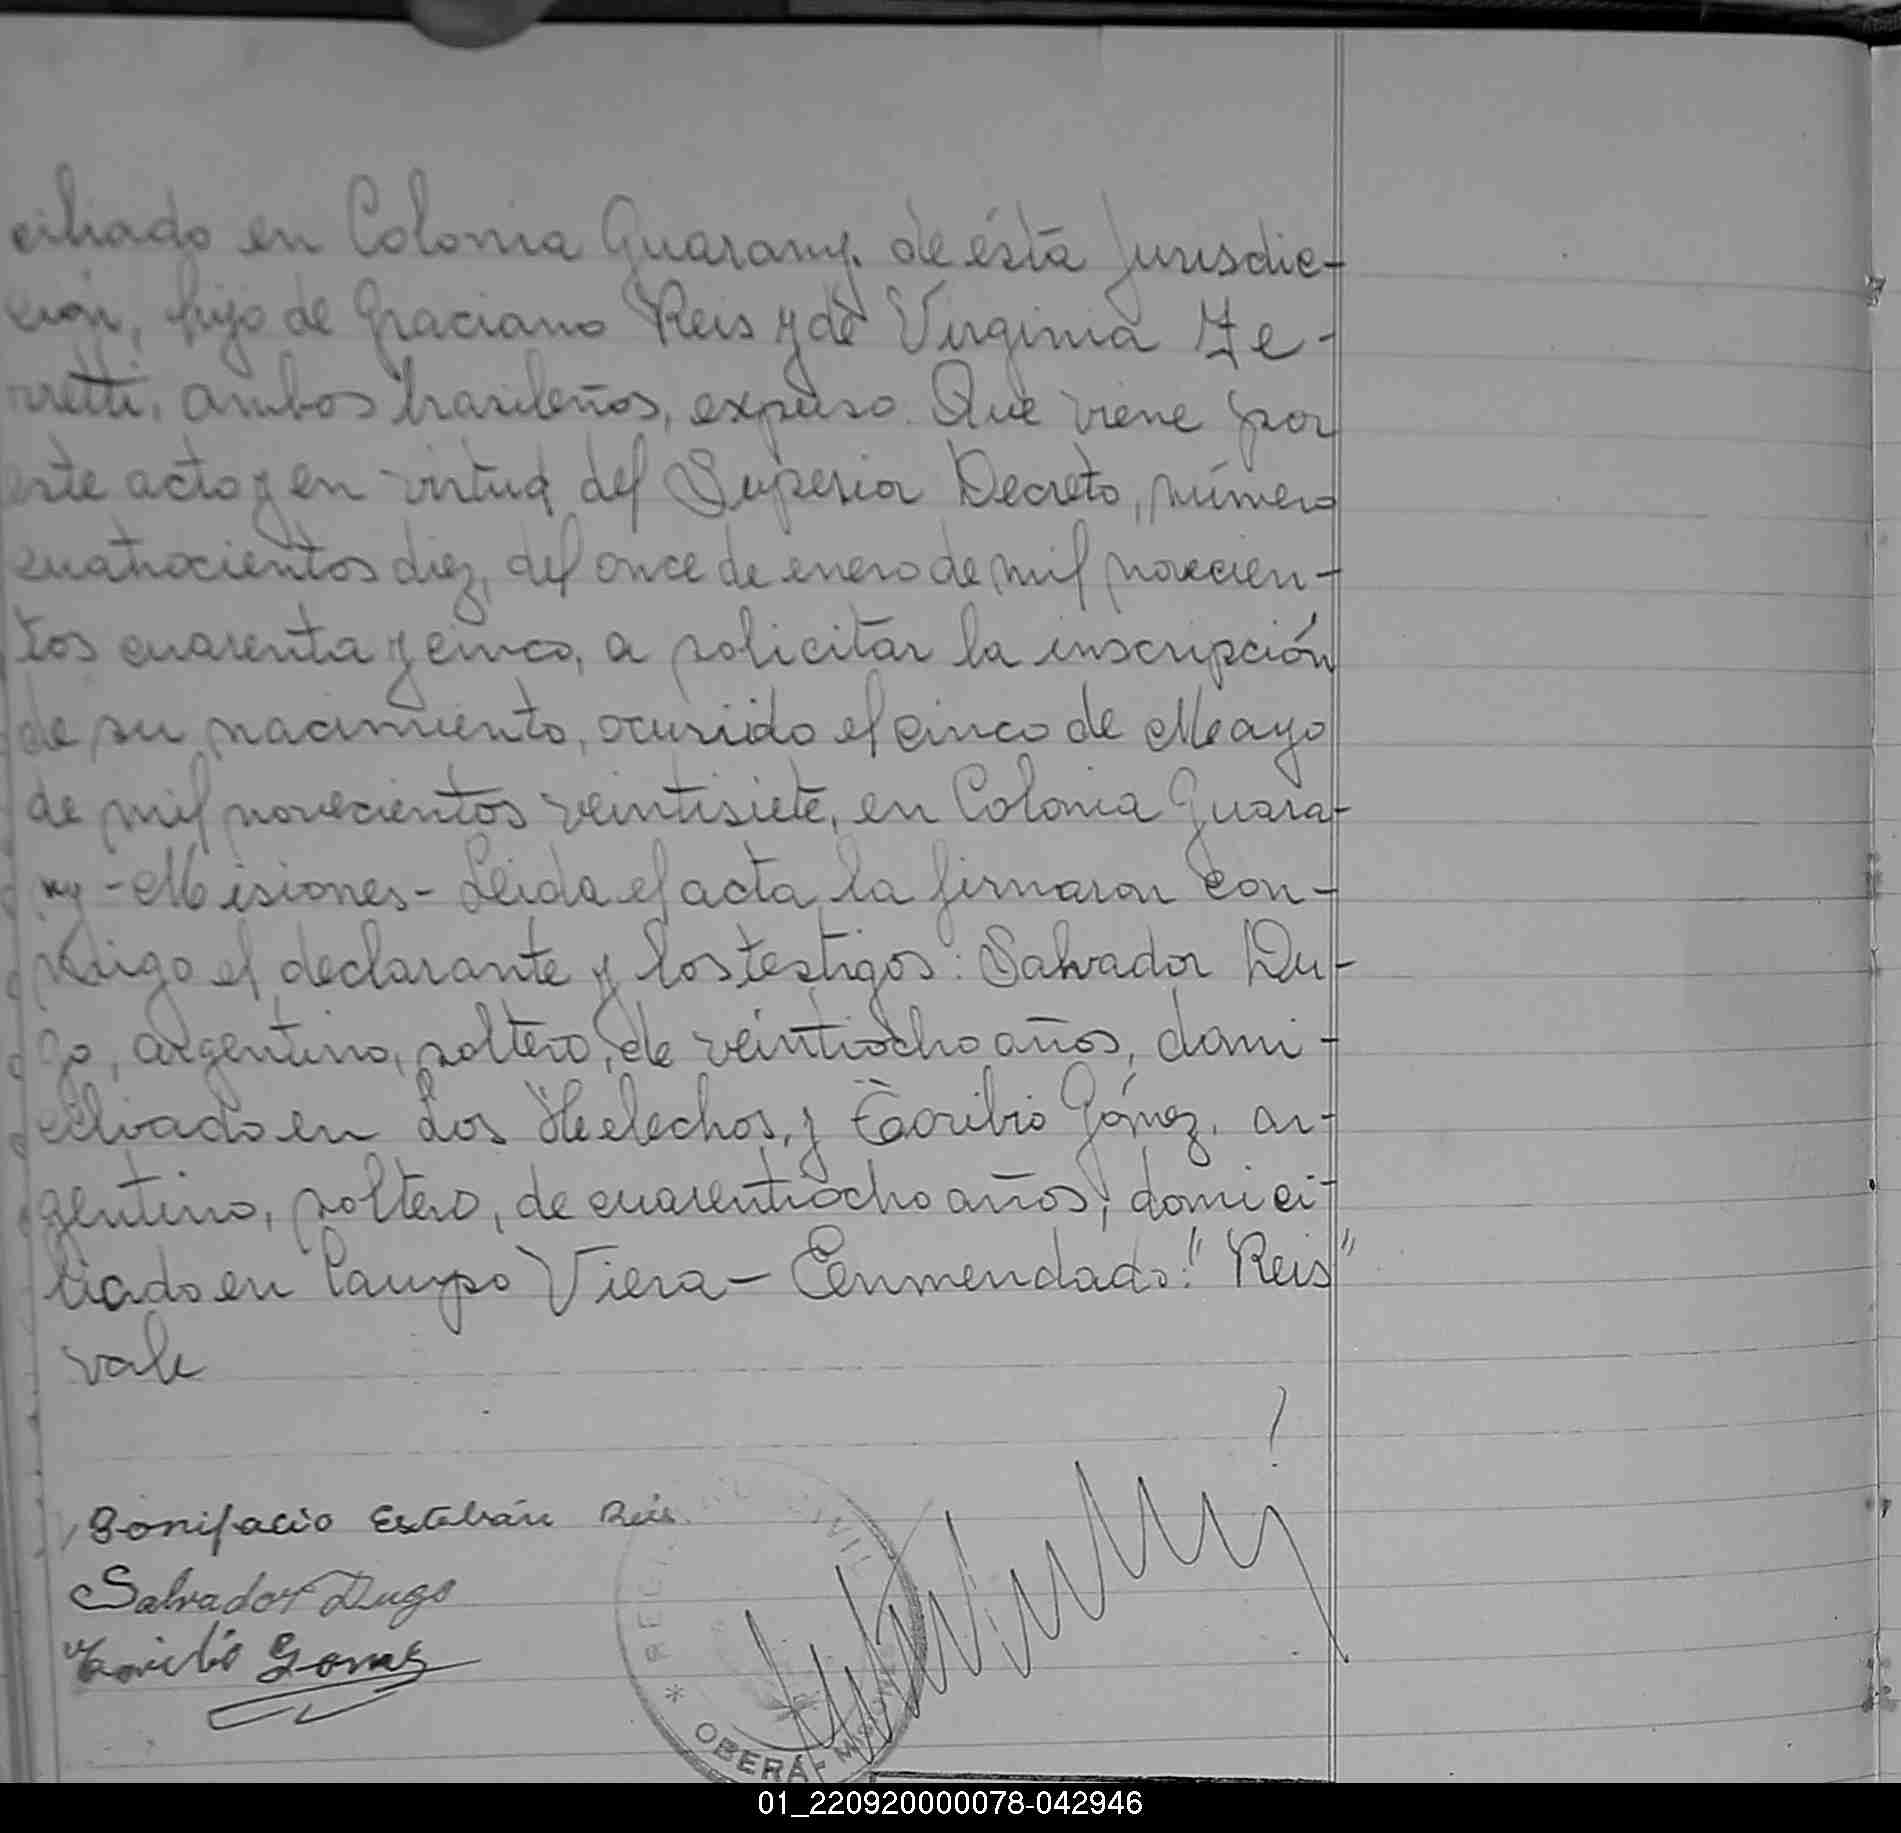 ciliado en Colonia Guarany. de ésta Jurisdic-
ción, hijo de Graciano Reis y de Virginia Fe-
rretti, ambos brasileños, expuso. Que viene por
este acto y en virtud del Superior Decreto, número
cuatrocientos diez, del once de enero de mil novecien-
tos cuarenta y cinco, a solicitar la inscripción
de su nacimiento, ocurrido el cinco de Mayo
de mil novecientos veintisiete, en Colonia Guara-
ny - Misiones - Leida el acta la firmaron con-
migo el declarante y los testigos: Salvador Du-
go, argentino, soltero, de veintiocho años, domi-
ciliado en Los Helechos, y Toribio Gómez. ar-
gentino, soltero, de cuarentiocho años, domici-
liado en Campo Viera - Enmendado: "Reis"
vale
Bonifacio Esteban Reis
Salvador Dugo
Toribio Gomez
REGISTRO CIVIL
* OBERÁ - MISIONES
01_220920000078-042946